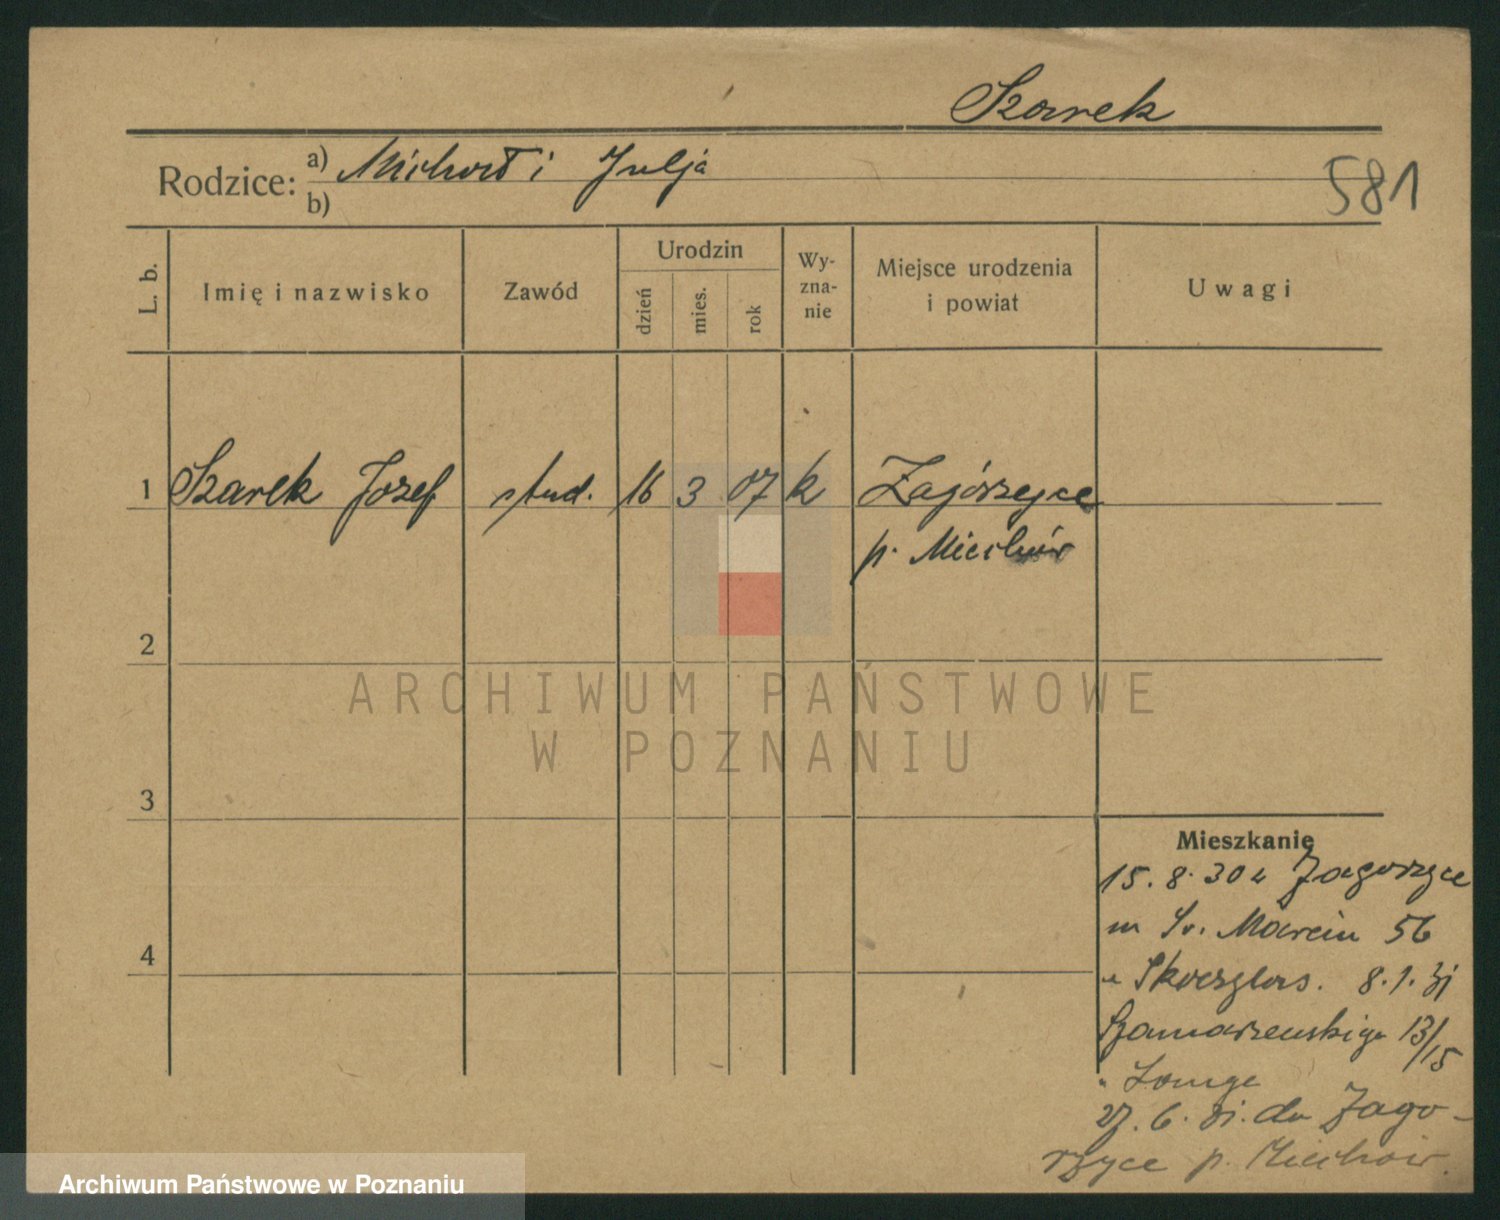 Szarek
Rodzice: a) Michał i Julja
b)
581
L. b. Imię i nazwisko Zawód Urodzin dzień mies. rok Wy-zna-nie Miejsce urodzenia i powiat Uwagi
1 Szarek Józef stud. 16 3 07 k Zagórzyce
p. Miechów
2
ARCHIWUM PAŃSTWOWE
W POZNANIU
3
Mieszkanie
15. 8. 30 z Zagorzyce
m Św. Marcin 56
8. 1. 31
4
Szamarzewskiego 13/15
" Lange
27. 6. 31. do Zago-
rzyce p. Miechów.
Archiwum Państwowe w Poznaniu